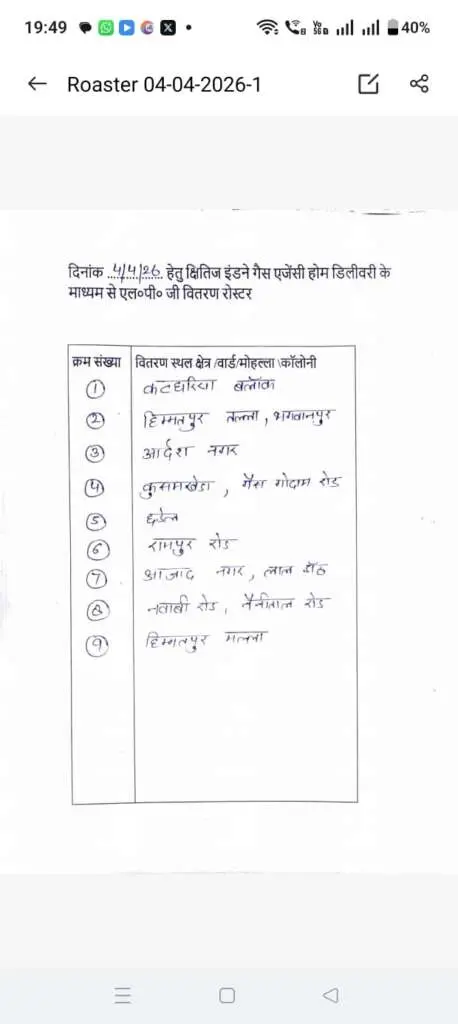 19:49
Vo
5G
40%
Roaster 04-04-2026-1
दिनांक 4/4/26 हेतु क्षितिज इंडने गैस एजेंसी होम डिलीवरी के
माध्यम से एल०पी० जी वितरण रोस्टर
क्रम संख्या वितरण स्थल क्षेत्र /वार्ड/मोहल्ला \कॉलोनी
1 कठघरिया ब्लॉक
2 हिम्मतपुर तल्ला, भगवानपुर
3 आर्दश नगर
4 कुसमखेडा, गैस गोदाम रोड
5
6 रामपुर रोड
7 आजाद नगर, लाल
8 नवाबी रोड, नैनीताल रोड
9 हिम्मतपुर मल्ला